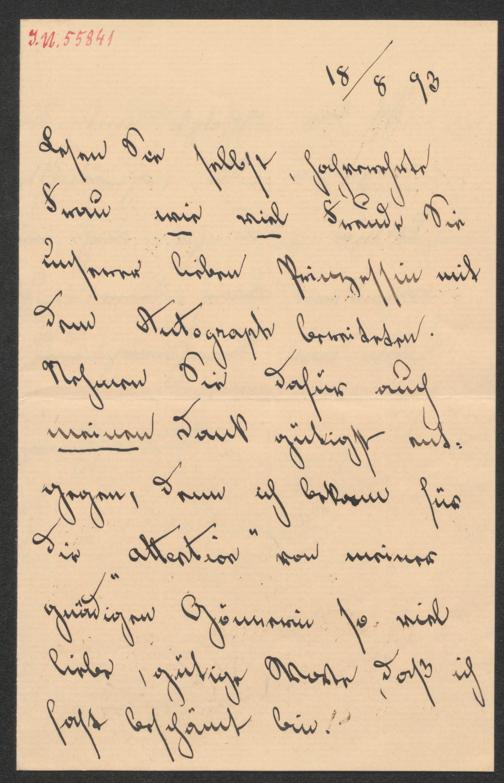 J.N. 55841
18/8 93
Lesen Sie selbst, hochverehrte
Frau wie viel Freude Sie
unserer lieben Prinzessin mit
dem Autograph bereiteten.
Nehmen Sie dafür auch
meinen Dank gütigst ent-
gegen, denn ich bekam für
die "attention" von meiner
gnädigen Gönnerin so viel
liebe, gütige Worte, daß ich
fast beschämt bin.